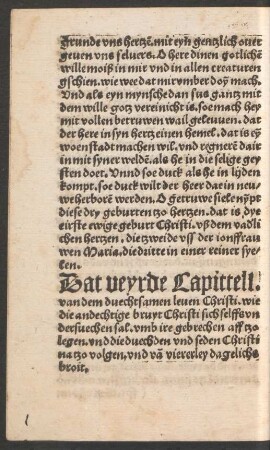 grunde vns hertzē. mit eyn gentzlich ouer
geuen vns seluers. O here dinen gotlichē
wille moiß in mir vnd in allen creaturen
gschien. wie wee dat mir vmber doÿ mach.
Vnd als eyn mynsche dan sus gantz mit
dem wille gotz vereinicht is. soe mach hey
mit vollen betruwen wail geleuuen. dat
der here in syn hertz einen hemel. dat is eÿ
woenstadt machen wil. vnd regnerē dair
in mit syner weldē. als he in die selige gey
sten doet. Vnnd soe duck als he in lijden
kompt. soe duck wilt der heer dae in neu-
we herborē werden. O getruwe siele nÿpt
diese dry geburten zo hertzen. dat is dye
eirste ewige geburt Christi. vß dem vadli
chen hertzen. die tzweide vss der ionffrau
wen Maria. die dritte in einer reiner sye
len.
Dat veyrde Capittell.
van dem duechtsamen leuen Christi. wie
die andechtige bruyt Christi sich selffs vn
dersuechen sal. vmb ire gebrechen aff tzo
legen. vnd die duechden vnd seden Christi
na tzo volgen. vnd vā viererley dagelichs
broit.